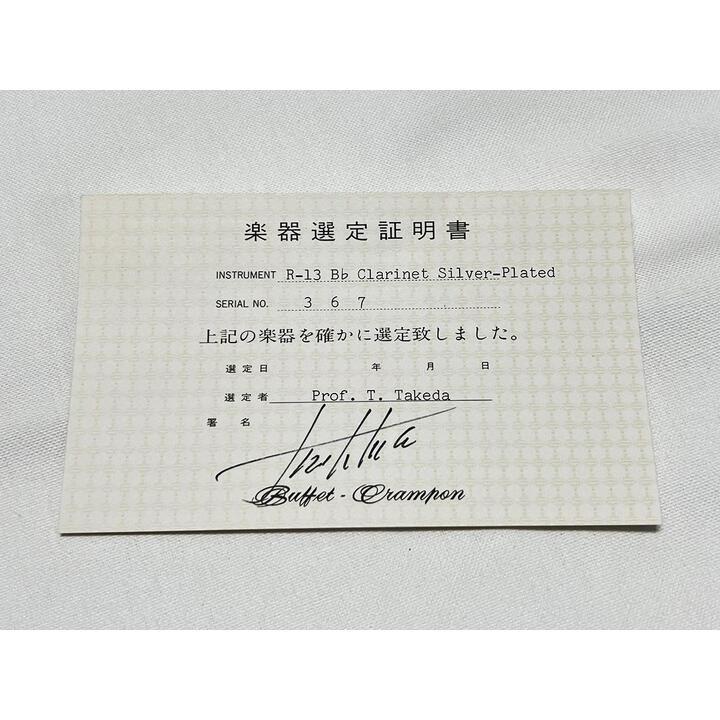 楽器選定証明書
INSTRUMENT R-13 B♭ Clarinet Silver-Plated
SERIAL NO. 3 6 7
上記の楽器を確かに選定致しました。
選定日 年 月 日
選定者 Prof. T. Takeda
署名
Buffet - Crampon